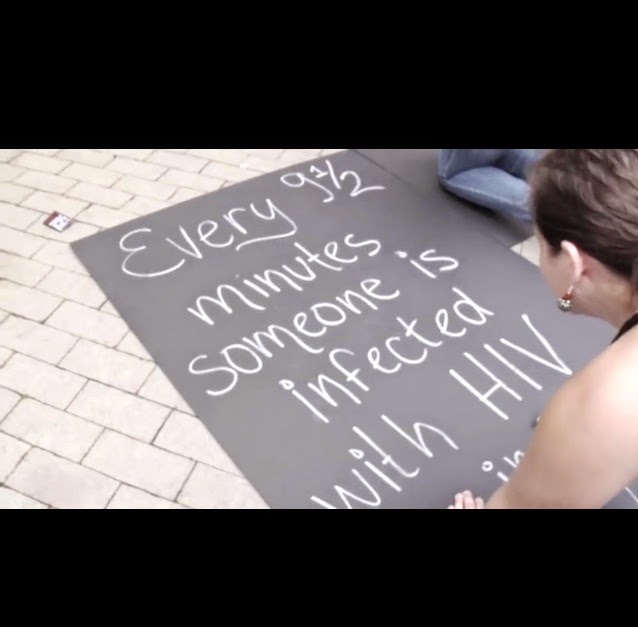 Every 9½
minutes
someone is
infected
with HIV
in